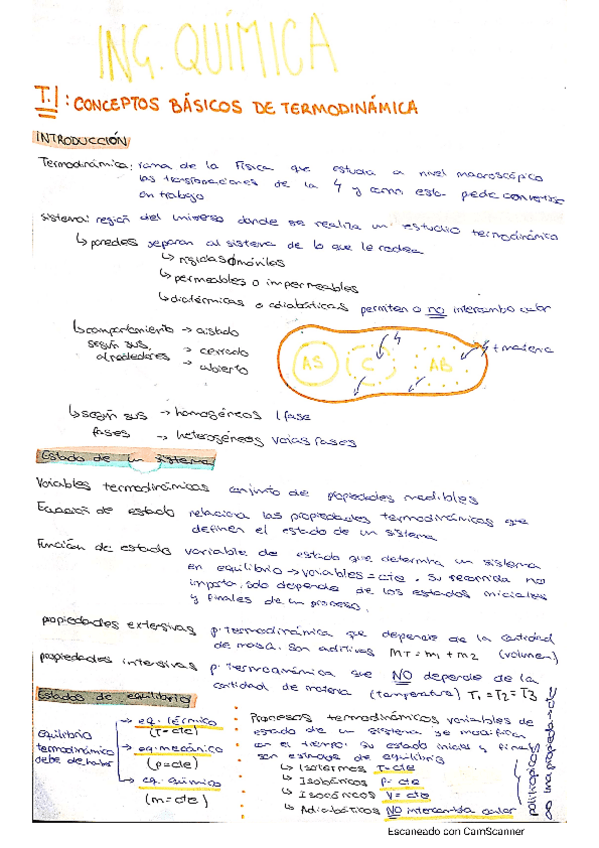 ING. QUÍMICA
T.1: CONCEPTOS BÁSICOS DE TERMODINÁMICA
INTRODUCCIÓN
Termodinámica: rama de la Física que estudia a nivel macroscópico
las transformaciones de la y como esta puede convertirse
en trabajo
Sistema: región del universo donde se realiza un estudio termodinámico
↳ paredes separan al sistema de lo que le rodea
↳ rígidas o móviles
↳ permeables o impermeables
↳ diatérmicas o adiabáticas permiten o no intercambio calor
↳ comportamiento → aislado
según sus → cerrado
alrededores → abierto
AS C AB + materia
↳ según sus → homogéneos 1 fase
fases → heterogéneos varias fases
Estado de un sistema
Variables termodinámicas conjunto de propiedades medibles
Ecuación de estado relaciona las propiedades termodinámicas que
definen el estado de un sistema
Función de estado variable de estado que determina un sistema
en equilibrio → variables = cte. Su recorrido no
importa, solo depende de los estados iniciales
y finales de un proceso.
propiedades extensivas p. termodinámica que depende de la cantidad
de masa. Son aditivas MT = m1 + m2 (volumen)
propiedades intensivas p. termodinámica que NO depende de la
cantidad de materia (temperatura) T1 = T2 = T3
Estados de equilibrio
equilibrio
termodinámico
debe de haber
→ eq. térmico
(T = cte)
→ eq. mecánico
(p = cte)
→ eq. químico
(m = cte)
Procesos termodinámicos variables de
estado de un sistema se modifica
en el tiempo. Su estado inicial y final
son estados de equilibrio
↳ Isotermos T = cte
↳ Isobáricos P = cte
↳ Isocóricos V = cte
↳ Adiabáticos NO intercambia calor
politrópicos
una propiedad cte
Escaneado con CamScanner